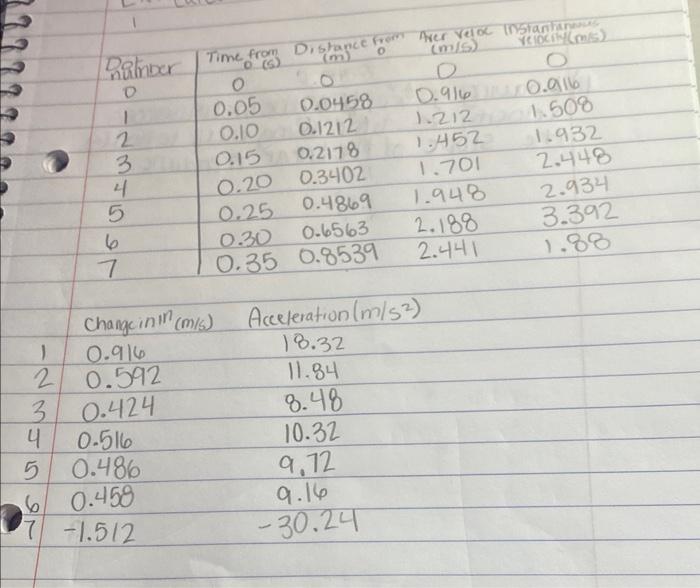 1
Dot number Time from 0 (s) Distance from 0 (m) Aver veloc (m/s) Instantaneous velocity (m/s)
0 0 0 0 0
1 0.05 0.0458 0.916 0.916
2 0.10 0.1212 1.212 1.508
3 0.15 0.2178 1.452 1.932
4 0.20 0.3402 1.701 2.448
5 0.25 0.4869 1.948 2.934
6 0.30 0.6563 2.188 3.392
7 0.35 0.8539 2.441 1.88
Change in (m/s) Acceleration (m/s²)
1 0.916 18.32
2 0.592 11.84
3 0.424 8.48
4 0.516 10.32
5 0.486 9.72
6 0.458 9.16
7 -1.512 -30.24